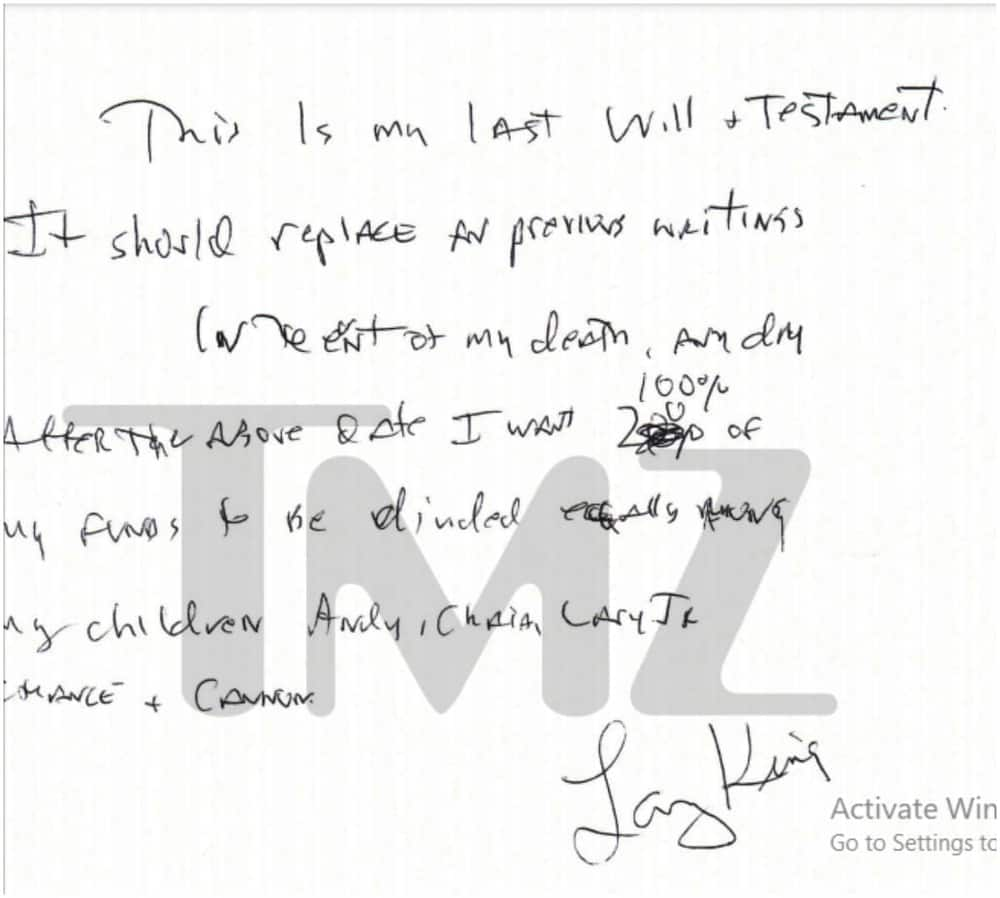 This Is my last Will + Testament.
It should replace all previous writings
In the event of my death, any day
100%
after the above date I want of
my funds to be divided equally among
my children Andy, Chaia, Larry Jr
Chance + Cannon.
Larry King
TMZ
Activate Win
Go to Settings to